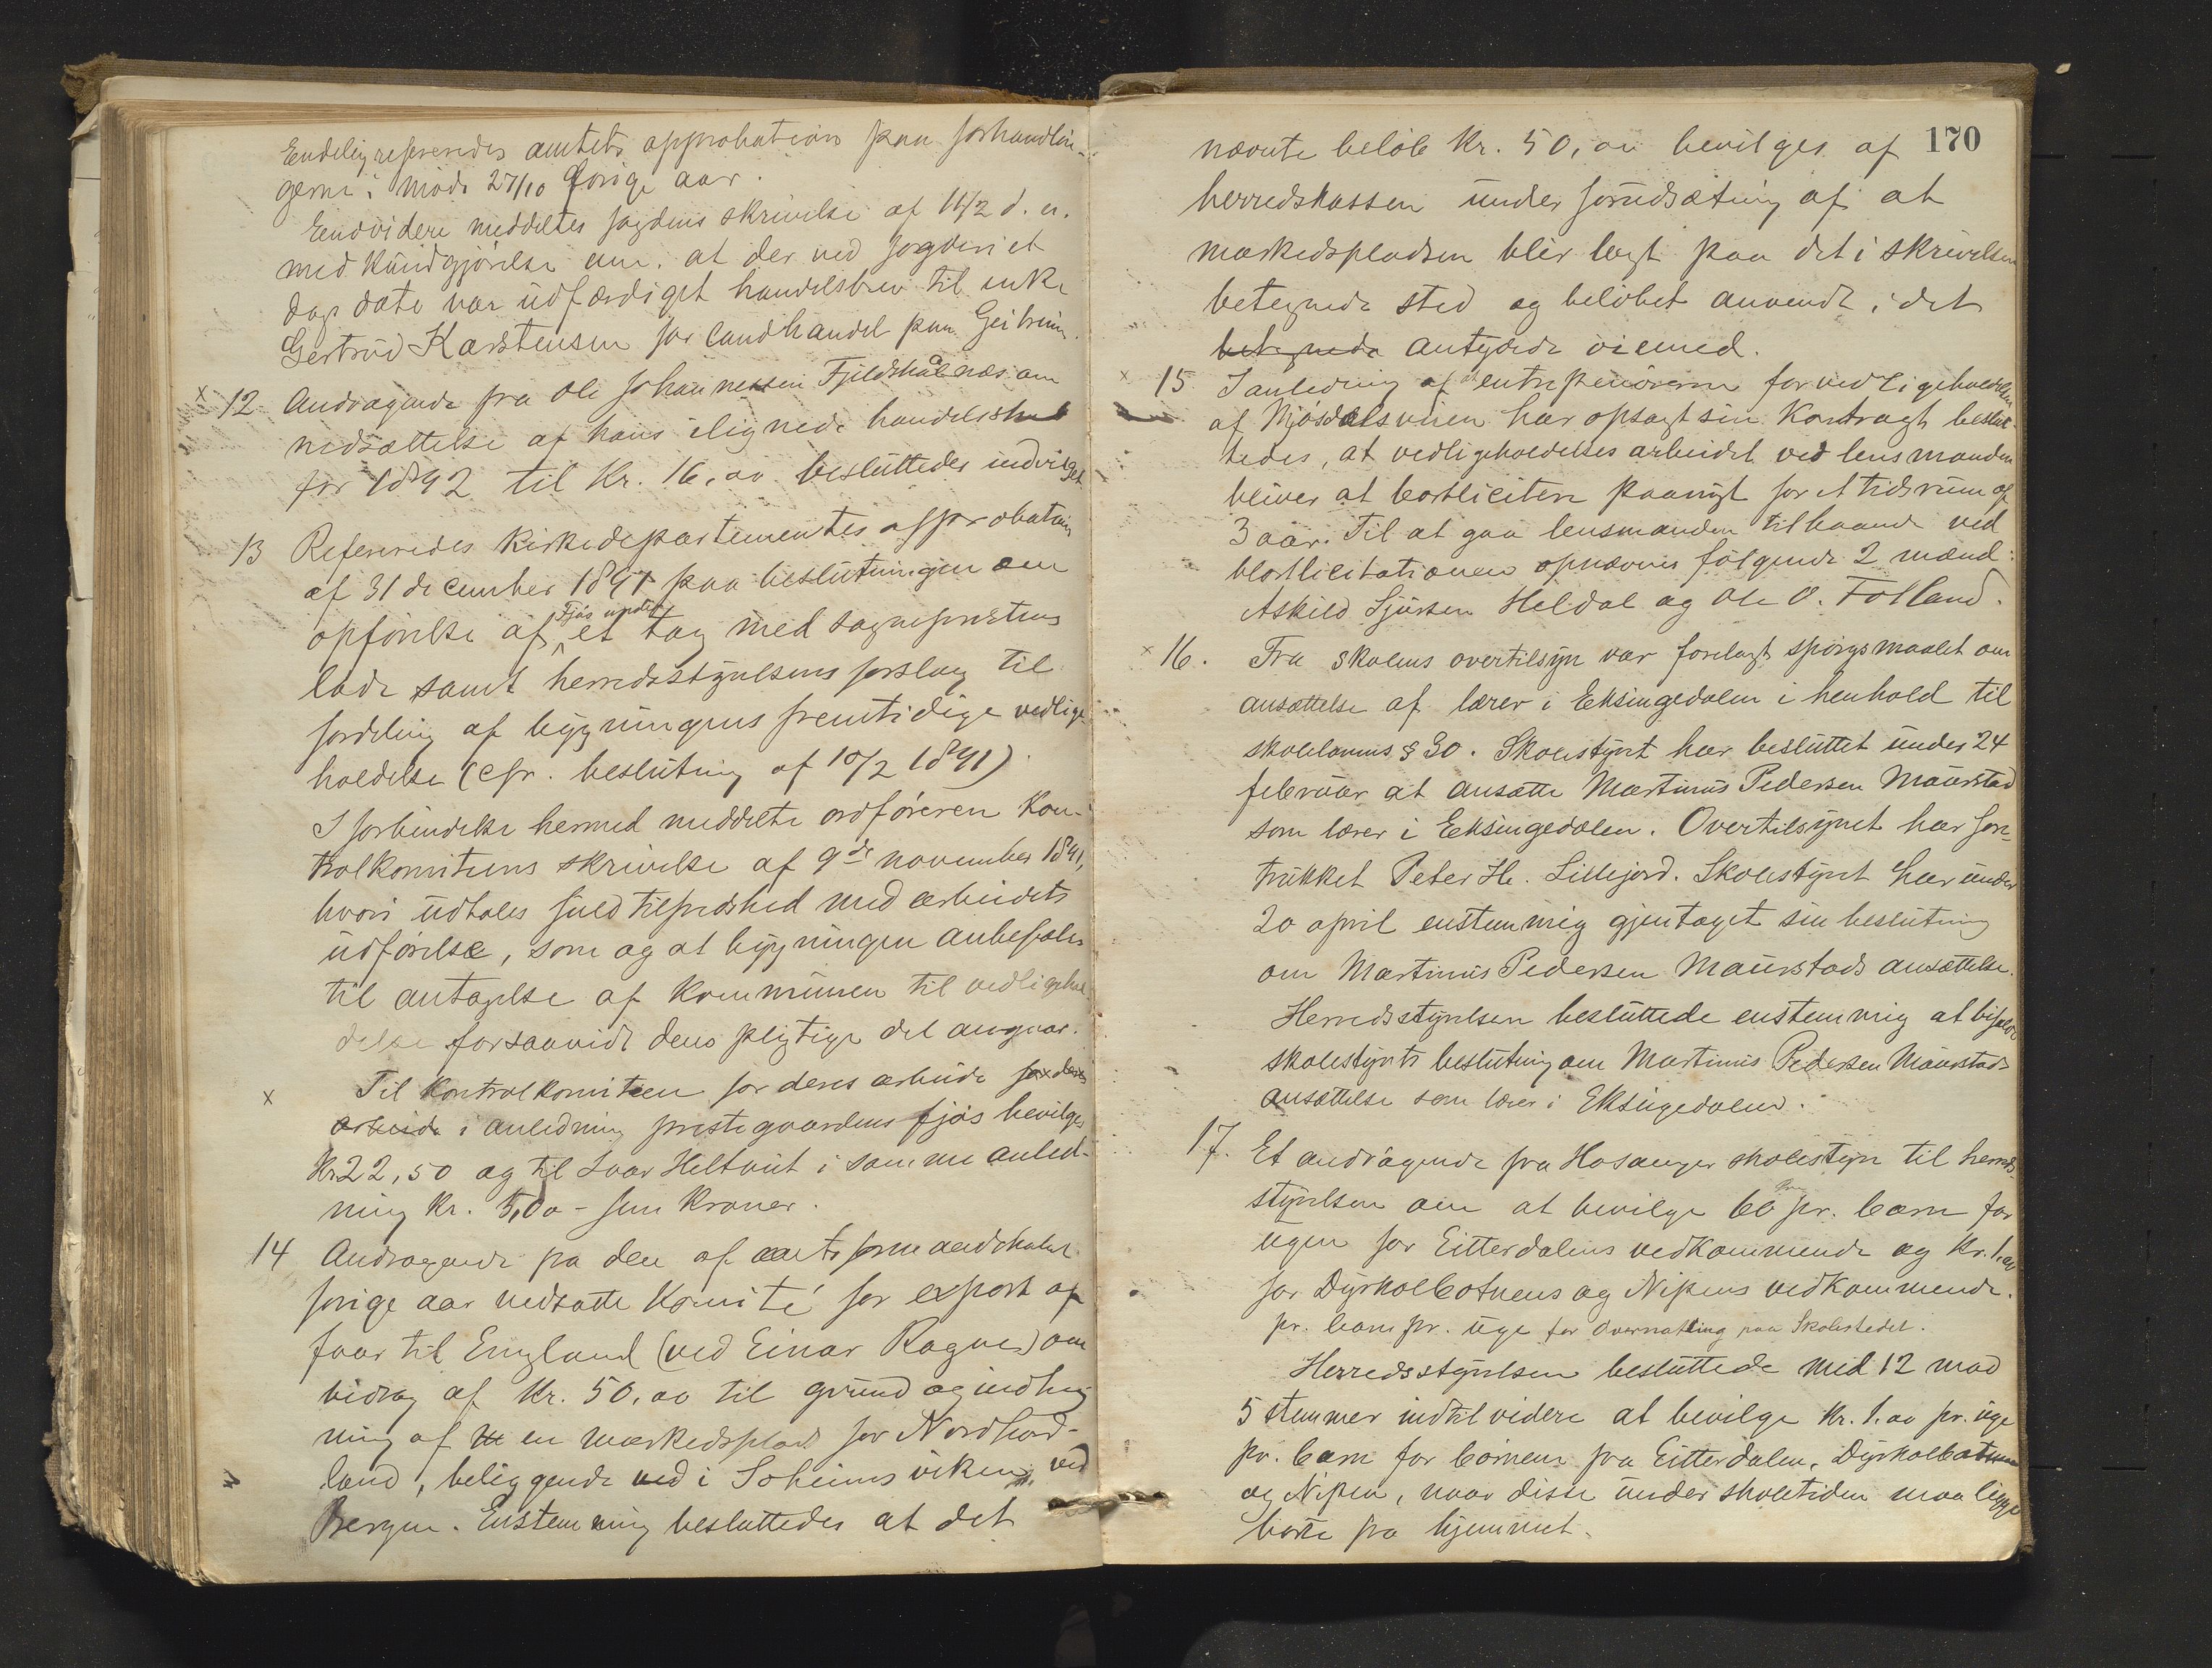 Endelig refereredes amtets approbation paa forhandlin-
gerne i møde 27/10 forige aar.
Endvidere meddeltes fogdens skrivelse af 11/2 d. a.
med kundgjørelse om, at der ved fogderiet
dags dato var udfærdiget handelsbrev til enke
Gertrud Karstensen for landhandel paa Geitrein.
x 12 Andragende fra Ole Johannessen Fjeldskaalnæs om
nedsættelse af hans ilignede handelsskat
for 1892 til Kr. 16,00 besluttedes indvilget
13 Refereredes Kirkedepartementes approbation
af 31 december 1891 paa beslutningen om
opførelse af Fjøs under et tag med sogneprestens
lade samt herredsstyrelsens forslag til
fordeling af bygningens fremtidige vedlige-
holdelse (cfr. beslutning af 10/2 1891).
I forbindelse hermed meddelte ordføreren Kon-
trolkomiteens skrivelse af 9de november 1891,
hvori udtales fuld tilfredshed med arbeidets
udførelse, som og at bygningen anbefales
til antagelse af Kommunen til vedligehol-
delse forsaavidt dens pligtige del angaar.
x Til Kontrolkomiteen for deres arbeide for deres
arbeide i anledning prestegaardens fjøs bevilges
Kr 22,50 og til Ivar Heltveit i samme anled-
ning Kr. 5,00 - fem Kroner.
14 Andragende fra den af amtsformandskabet
forige aar nedsatte Komité for export af
faar til England (ved Einar Ragnes) om
bidrag af Kr. 50,00 til grund og indheg
ning af en markedsplads for Nordhord-
land, beliggende ved i Solheimsviken ved
Bergen. Enstemmig besluttedes at det
170
nævnte beløb Kr. 50,00 bevilges af
herredskassen under forudsætning af at
markedspladsen blir lagt paa det i skrivelsen
betegnede sted og beløbet anvendt i det
betegnede antydede øiemed.
x 15 I anledning af at entreprenøreren for vedligeholdelsen
af Mjøsdalsveien har opsagt sin Kontragt beslut-
tedes, at vedligeholdelses arbeidet ved lensmanden
bliver at bortlicitere paanyt for et tidsrum af
3 aar. Til at gaa lensmanden tilhaande ved
bortlicitationen opnævnes følgende 2 mænd:
Askild Sjursen Heldal og Ole O. Folland.
x 16. Fra skolens overtilsyn var forelagt spørgsmaalet om
ansættelse af lærer i Eksingedalen i henhold til
skolelovens § 30. Skolestyret har besluttet under 24
februar at ansætte Martinus Pedersen Maurstad
som lærer i Eksingedalen. Overtilsynet har fore-
trukket Peter H. Lillejord. Skolestyret har under
20 april enstemmig gjentaget sin beslutning
om Martinus Pedersen Maurstads ansættelse.
Herredsstyrelsen besluttede enstemmig at bifalde
skolestyrets beslutning om Martinus Pedersen Maurstads
ansættelse som lærer i Eksingedalen.
17. Et andragende fra Hosanger skolestyre til herreds-
styrelsen om at bevilge 60 øre pr. barn for
ugen for Eitterdalens vedkommende og Kr. 1,00
for Dyrkolbotnens og Nipens vedkommende.
pr. barn pr. uge for overnatting paa Skolestedet.
Herredsstyrelsen besluttede med 12 mod
5 stemmer indtil videre at bevilge Kr. 1,00 pr. uge
pr. barn for børnene fra Eitterdalen, Dyrkolbotnen
og Nipen, naar disse under skoletiden maa ligge
borte fra hjemmet.